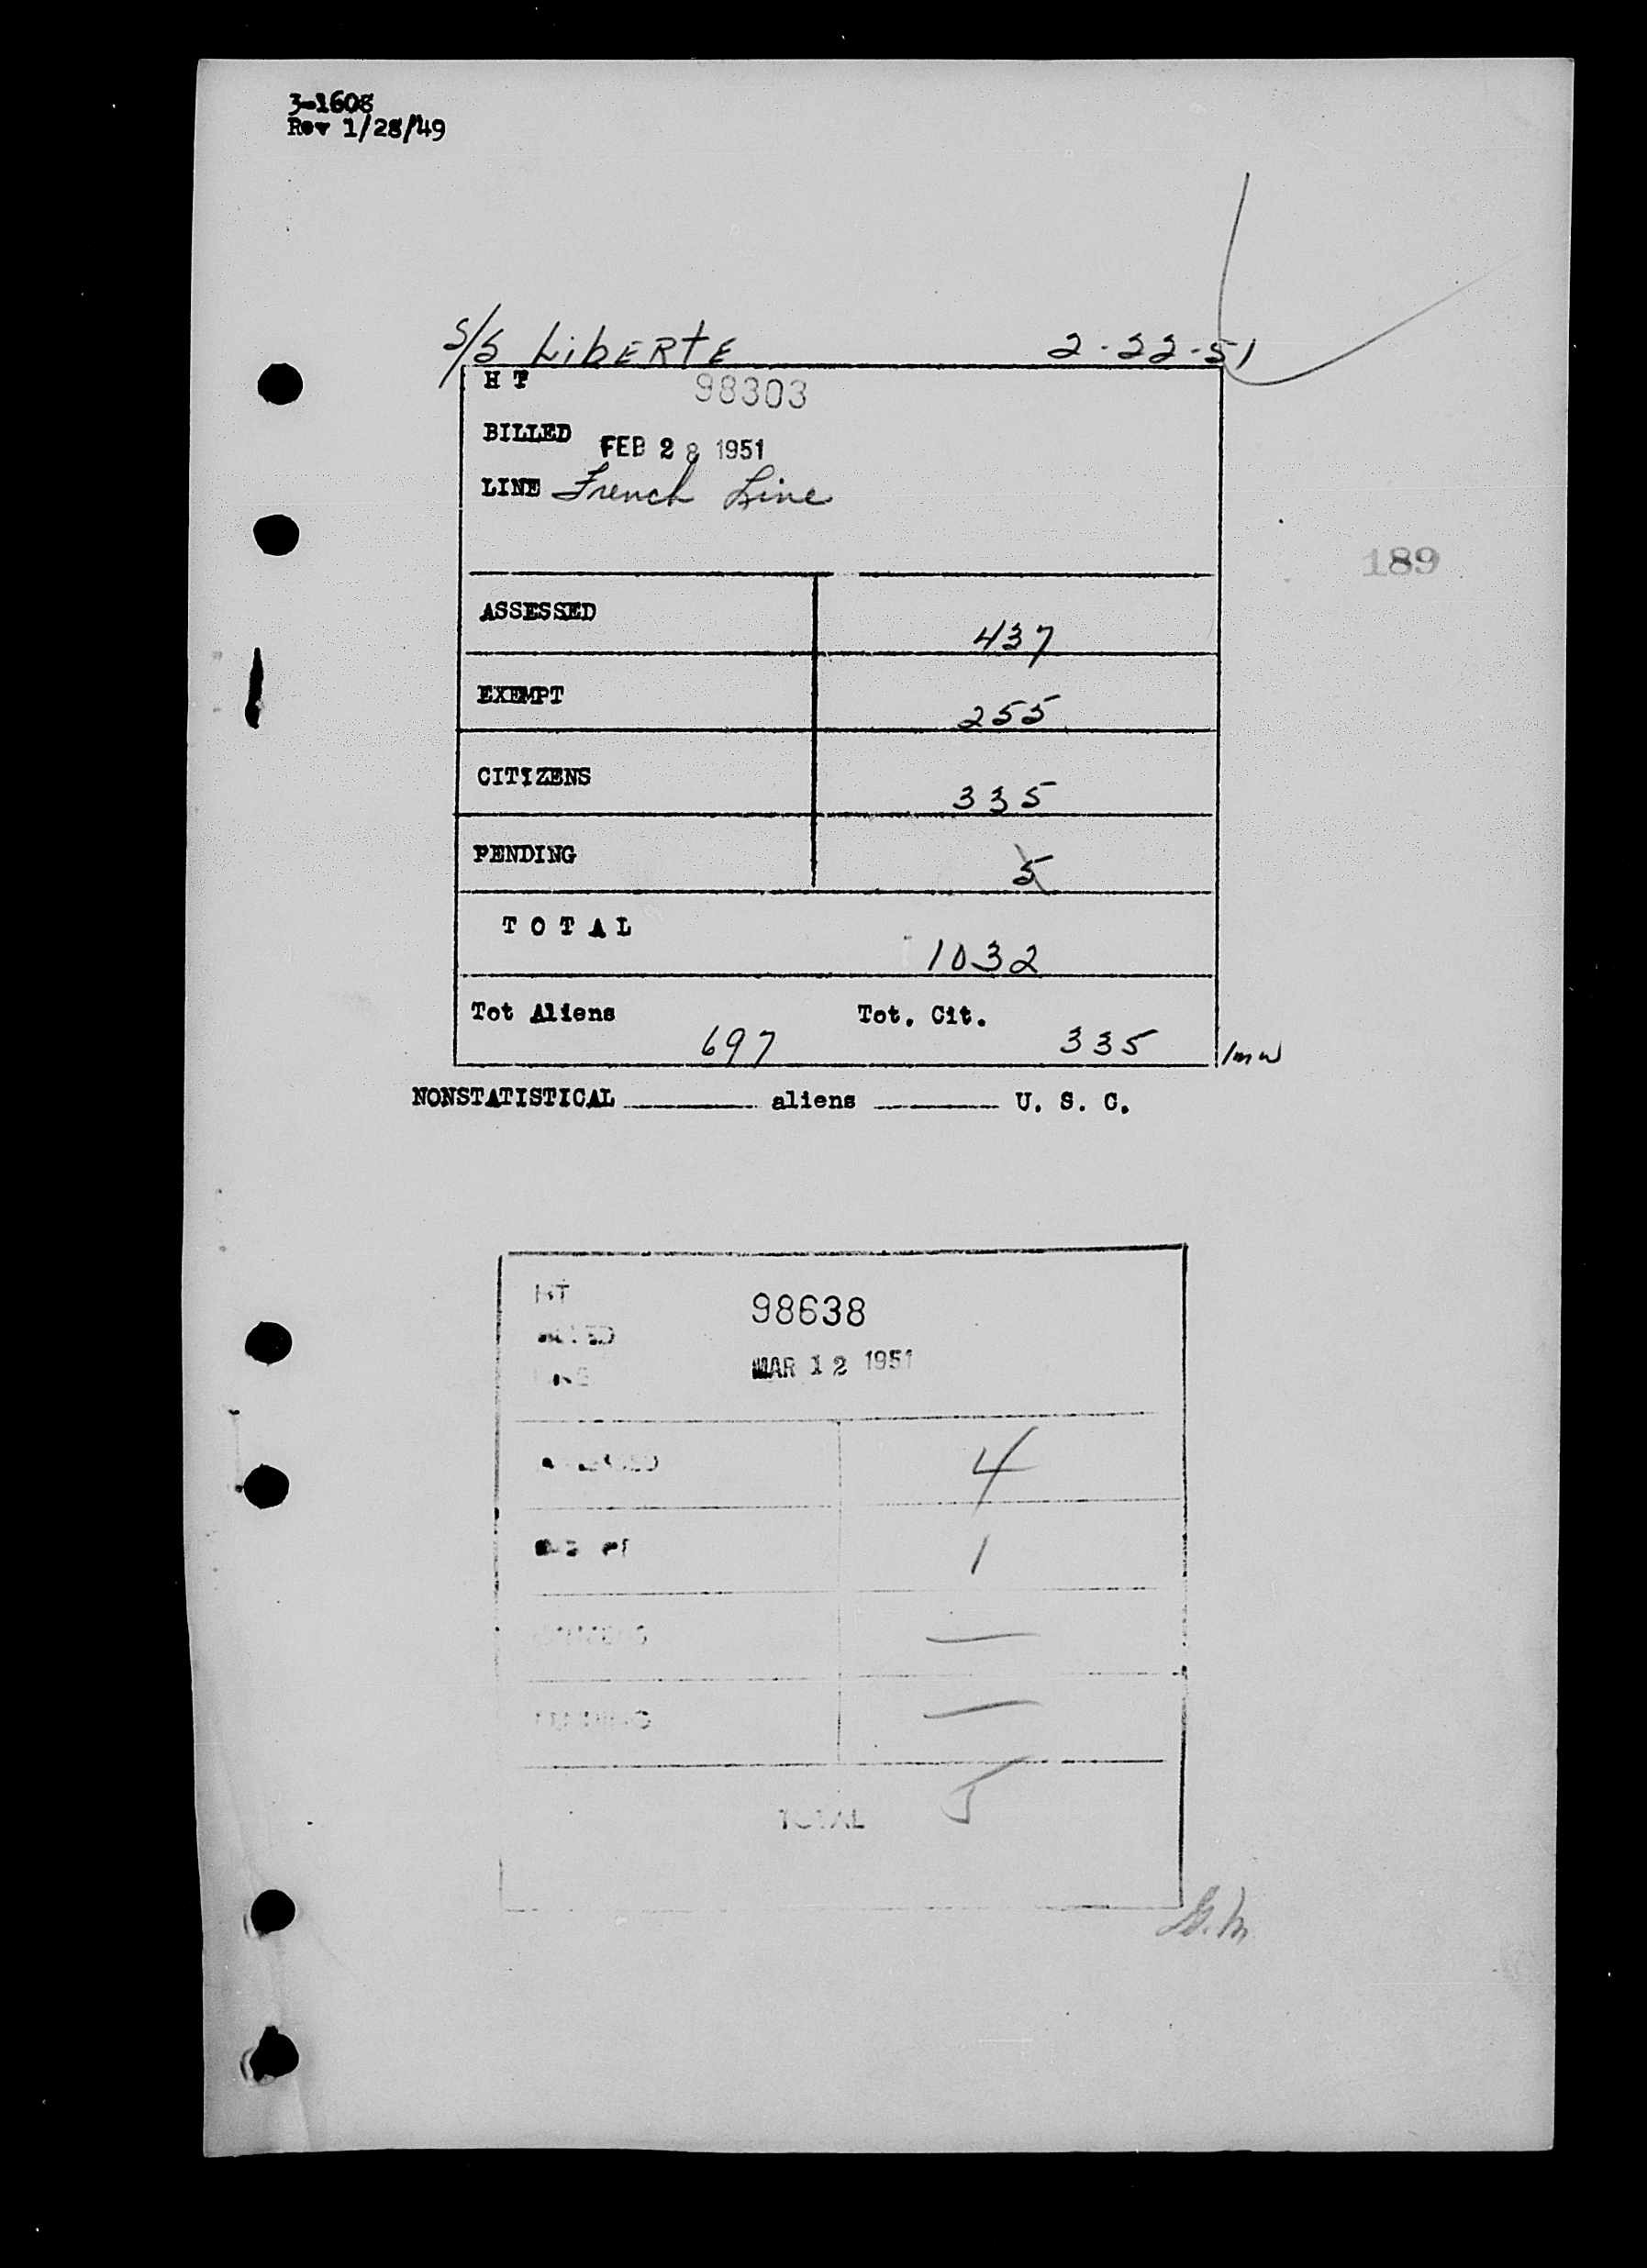 3-1608
Rev 1/28/49
S/S LibERtE 2-22-51
H T 98303
BILLED FEB 28 1951
LINE French Line
189
ASSESSED 437
EXEMPT 255
CITIZENS 335
PENDING 5
T O T A L 1032
Tot Aliens 697 Tot. Cit. 335 /mw
NONSTATISTICAL ______ aliens ______ U. S. C.
HT 98638
MAR 12 1951
4
1
—
—
TOTAL 5